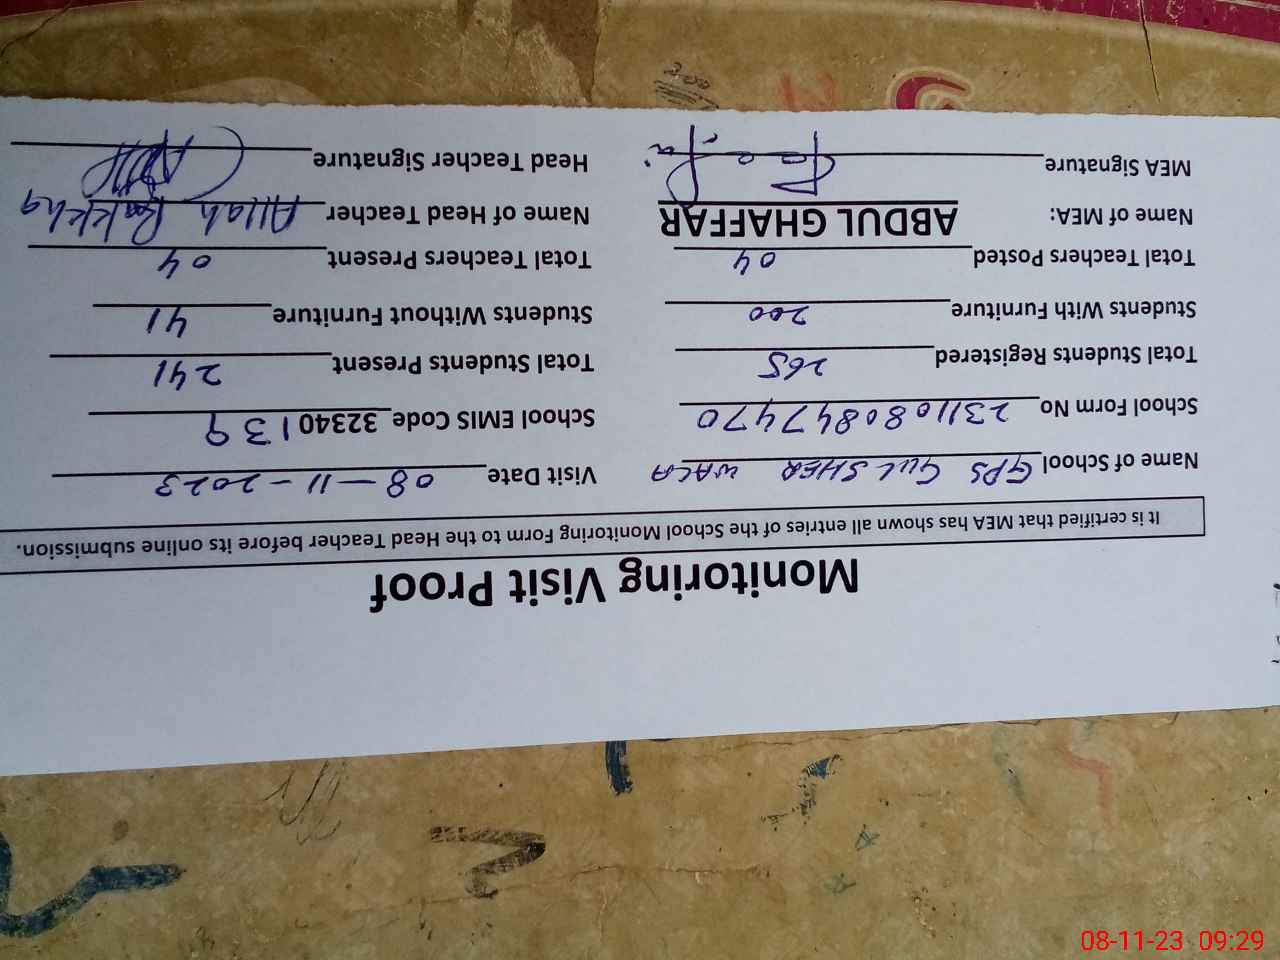 Monitoring Visit Proof
It is certified that MEA has shown all entries of the School Monitoring Form to the Head Teacher before its online submission.
Name of School GPS GUL SHER WALA Visit Date 08-11-2023
School Form No 231108084 77470 School EMIS Code 32340139
Total Students Registered 265 Total Students Present 241
Students With Furniture 200 Students Without Furniture 41
Total Teachers Posted 04 Total Teachers Present 04
Name of MEA: ABDUL GHAFFAR Name of Head Teacher Allah Rakkha
MEA Signature Head Teacher Signature
08-11-23 09:29